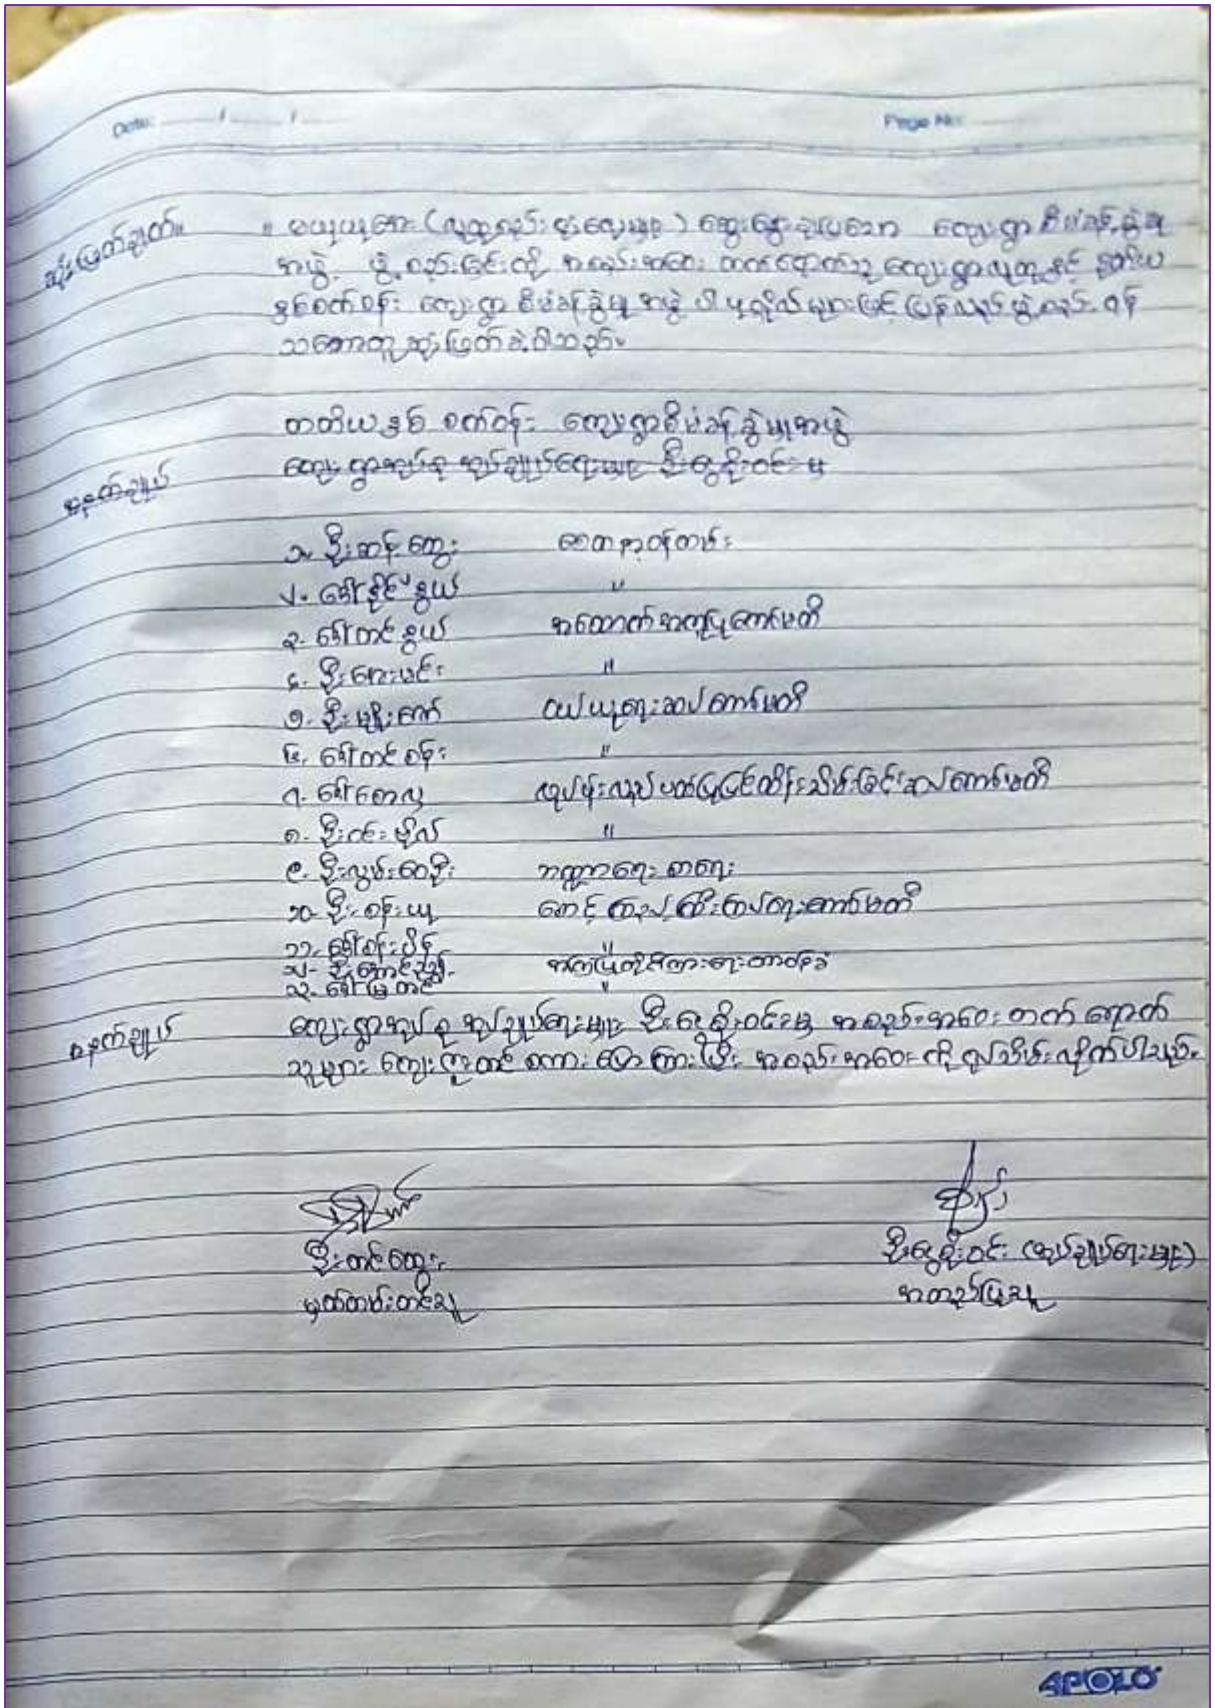 Date: / /
Page No:
ဆုံးဖြတ်ချက်။ ။ မယုယုအေး (လူထုစည်းရုံးလေ့မှုမှူး) ဆွေးနွေးချပြသော ကျေးရွာစီမံခန့်ခွဲမှု
အဖွဲ့ ဖွဲ့စည်းခြင်းကို အစည်းအဝေး တက်ရောက်သူ ကျေးရွာလူထုနှင့် ဒုတိယ
နှစ်စက်ဝန်း ကျေးရွာ စီမံခန့်ခွဲမှု အဖွဲ့ ပါ ပုဂ္ဂိုလ်များဖြင့် ပြန်လည်ဖွဲ့စည်းရန်
သဘောတူဆုံးဖြတ်ခဲ့ပါသည်။
တတိယနှစ် စက်ဝန်း ကျေးရွာစီမံခန့်ခွဲမှုအဖွဲ့
ကျေးရွာအုပ်စု အုပ်ချုပ်ရေးမှူး ဦးရွှေစိုးဝင်းမှ
နောက်ချုပ်
၁. ဦးဆန်ထွေး စေတနာ့ဝန်ထမ်း
၂. ဒေါ်ခိုင်နွယ် "
၃. ဒေါ်တင်နွယ် အထောက်အကူပြုကော်မတီ
၄. ဦးအေးမင်း "
၅. ဦးမျိုးကျော် ဝယ်ယူရေးဆပ်ကော်မတီ
၆. ဒေါ်တင်စန်း "
၇. ဒေါ်စောလှ လုပ်ငန်းလည်ပတ်ပြုပြင်ထိန်းသိမ်းခြင်းဆပ်ကော်မတီ
၈. ဦးဝင်းဗိုလ် "
၉. ဦးလွမ်းဝေဦး ဘဏ္ဍာရေး စာရေး
၁၀. ဦးစန်းယု စောင့်ကြည့်ကြီးကြပ်ရေးကော်မတီ
၁၁. ဒေါ်စန်းစိန် "
၁၂. ဦးအောင်ညွန့် အကြံပြုတိုင်ကြားရေးတာဝန်ခံ
၁၃. ဒေါ်မြတင် "
နောက်ချုပ် ကျေးရွာအုပ်စု အုပ်ချုပ်ရေးမှူး ဦးရွှေစိုးဝင်းမှ အစည်းအဝေး တက်ရောက်
သူများ ကျေးဇူးတင် စကား ပြောကြားပြီး အစည်းအဝေးကို ရုပ်သိမ်းလိုက်ပါသည်။
ဦးတင်ထွေး
မှတ်တမ်းတင်သူ
ဦးရွှေစိုးဝင်း (အုပ်ချုပ်ရေးမှူး)
အတည်ပြုသူ
APOLO